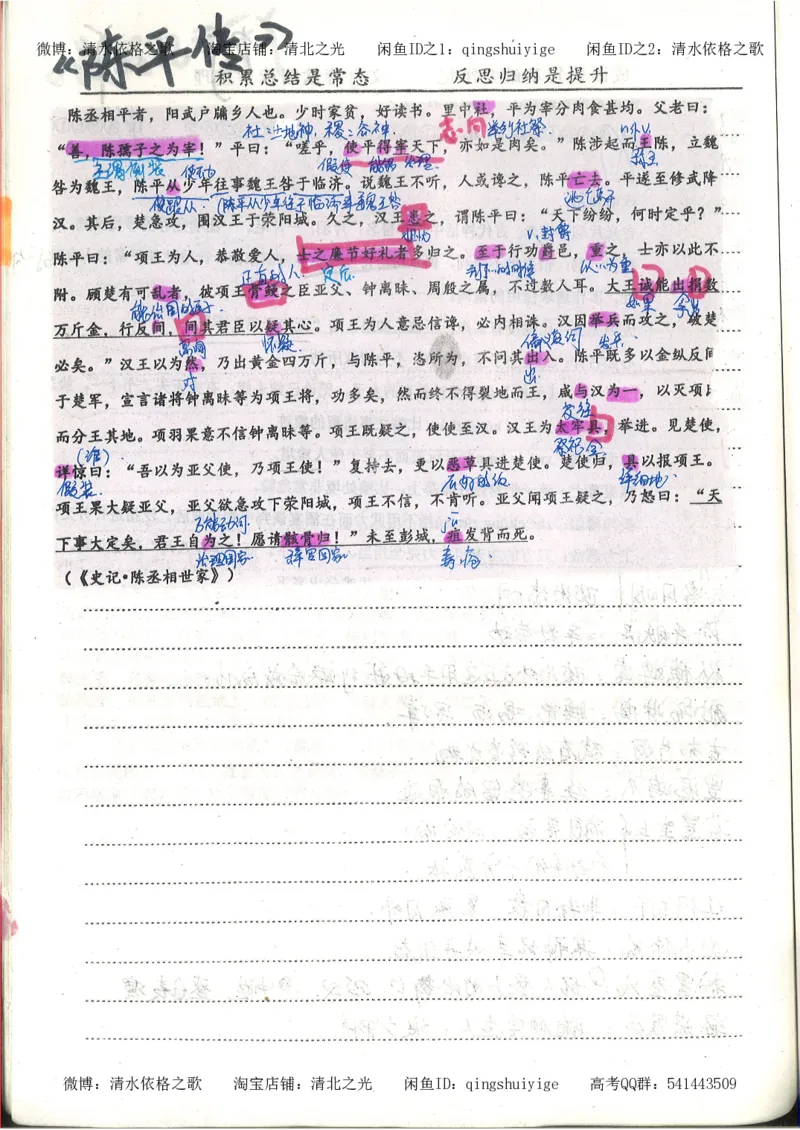 微博：清水依格之歌 淘宝店铺：清北之光 闲鱼ID之1：qingshuiyige 闲鱼ID之2：清水依格之歌
《陈平传》
积累总结是常态 反思归纳是提升
陈丞相平者，阳武户牖乡人也。少时家贫，好读书。里中社，平为宰分肉食甚均。父老曰：
社：土地神，稷：谷神.
n→v.
“善，陈孺子之为宰！”平曰：“嗟乎，使平得宰天下，亦如是肉矣。”陈涉起而王陈，立魏
主谓倒装 使动 假使 能够
咎为魏王，陈平从少年往事魏王咎于临济。说魏王不听，人或谗之，陈平亡去。平遂至修武降
使跟从 (陈平从少年往于临济事魏王咎 逃亡离开
汉。其后，楚急攻，围汉王于荥阳城。久之，汉王患之，谓陈平曰：“天下纷纷，何时定乎？”
v.封爵
陈平曰：“项王为人，恭敬爱人，士之廉节好礼者多归之。至于行功爵邑，重之，士亦以此不
定后 到…的时候 以…为重
附。顾楚有可乱者，彼项王骨鲠之臣亚父、钟离昧、周殷之属，不过数人耳。大王诚能出捐数
如果 拿出
万斤金，行反间，间其君臣以疑其心。项王为人意忌信谗，必内相诛。汉因举兵而攻之，破楚
离间 怀疑
必矣。”汉王以为然，乃出黄金四万斤，与陈平，恣所为，不问其出入。陈平既多以金纵反间
对 出
于楚军，宣言诸将钟离昧等为项王将，功多矣，然而终不得裂地而王，咸与汉为一，以灭项
而分王其地。项羽果意不信钟离昧等。项王既疑之，使使至汉。汉王为太牢具，举进。见楚使，
(谁)
详惊曰：“吾以为亚父使，乃项王使！”复持去，更以恶草具进楚使。楚使归，具以报项王。
假装. 详细地
项王果大疑亚父，亚父欲急攻下荥阳城，项王不信，不肯听。亚父闻项王疑之，乃怒曰：“天
jū
下事大定矣，君王自为之！愿请骸骨归！”未至彭城，疽发背而死。
治理国家 毒疮
（《史记·陈丞相世家》）
微博：清水依格之歌 淘宝店铺：清北之光 闲鱼ID：qingshuiyige 高考QQ群：541443509